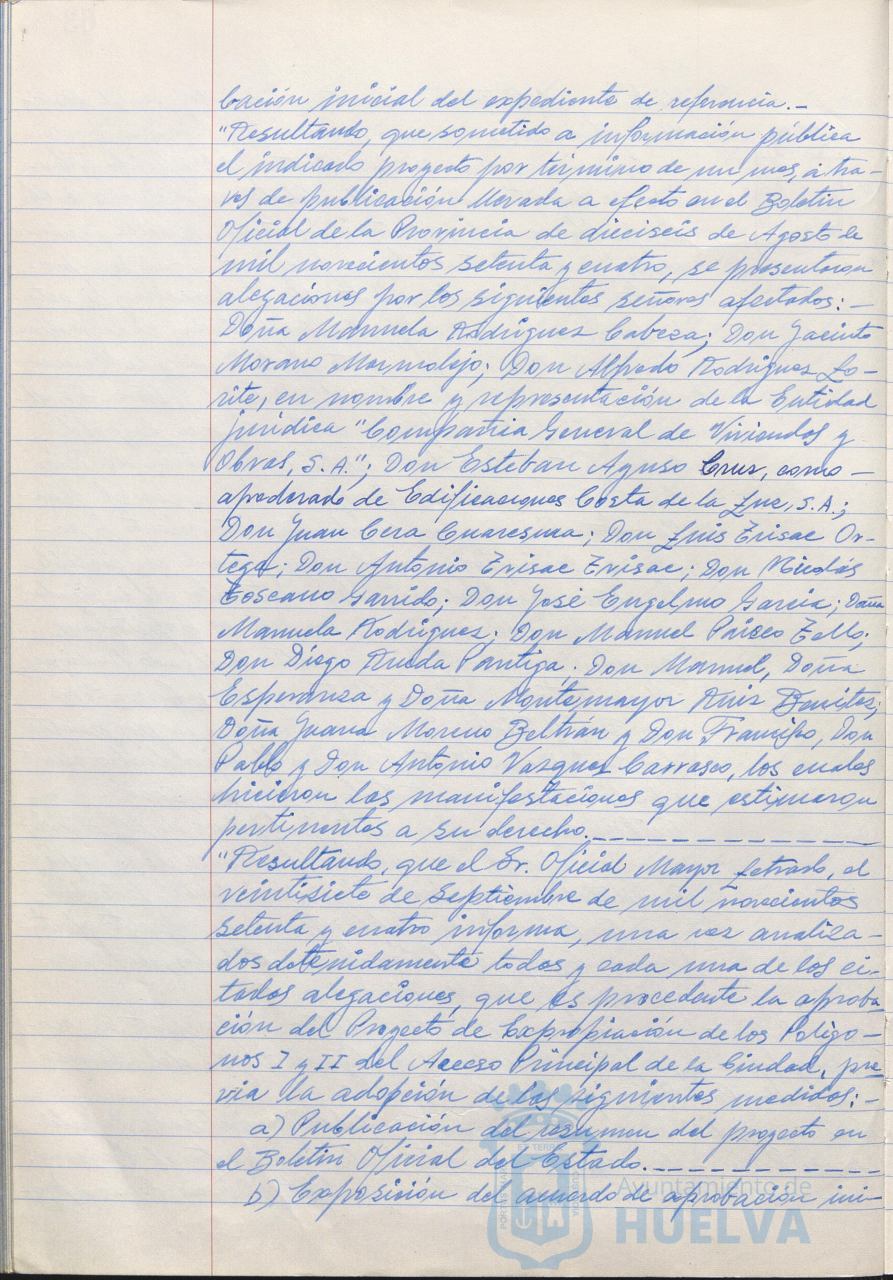 bación inicial del expediente de referencia.-
"Resultando, que sometido a información pública
el indicado proyecto por término de un mes, a tra-
vés de publicación llevada a efecto en el Boletín
Oficial de la Provincia de dieciseis de Agosto de
mil novecientos setenta y cuatro, se presentaron
alegaciones por los siguientes señores afectados:-
Doña Manuela Rodríguez Cabeza; Don Jacinto
Morano Marmolejo; Don Alfredo Rodríguez Lo-
rite, en nombre y representación de la Entidad
jurídica "Compañía General de Viviendas y
Obras, S.A."; Don Esteban Ayuso Cruz, como-
apoderado de Edificaciones Costa de la Luz, S.A.;
Don Juan Cera Cuaresma; Don Luis Erisac Or-
tega; Don Antonio Erisac Erisac; Don Nicolás
Toscano Garrido; Don José Engelmo García; Doña
Manuela Rodríguez; Don Manuel Tello;
Don Diego Rueda Pantiga; Don Manuel, Doña
Esperanza y Doña Montemayor Ruiz Benitez;
Doña Juana Moreno Beltrán y Don Francisco, Don
Pablo y Don Antonio Vazquez Carrasco, los cuales
hicieron las manifestaciones que estimaron
pertinentes a su derecho.---------
"Resultando, que el Sr. Oficial Mayor Letrado, el
veintisiete de Septiembre de mil novecientos
setenta y cuatro informa, una vez analiza-
dos detenidamente todas y cada una de los ci-
tadas alegaciones, que es procedente la aproba-
ción del Proyecto de Expropiación de los Polígo-
nos I y II del Acceso Principal de la Ciudad, pre-
via la adopción de las siguientes medidas:-
a) Publicación del resumen del proyecto en
el Boletín Oficial del Estado.--------
b) Exposición del acuerdo de aprobación ini-
Ayuntamiento de
HUELVA